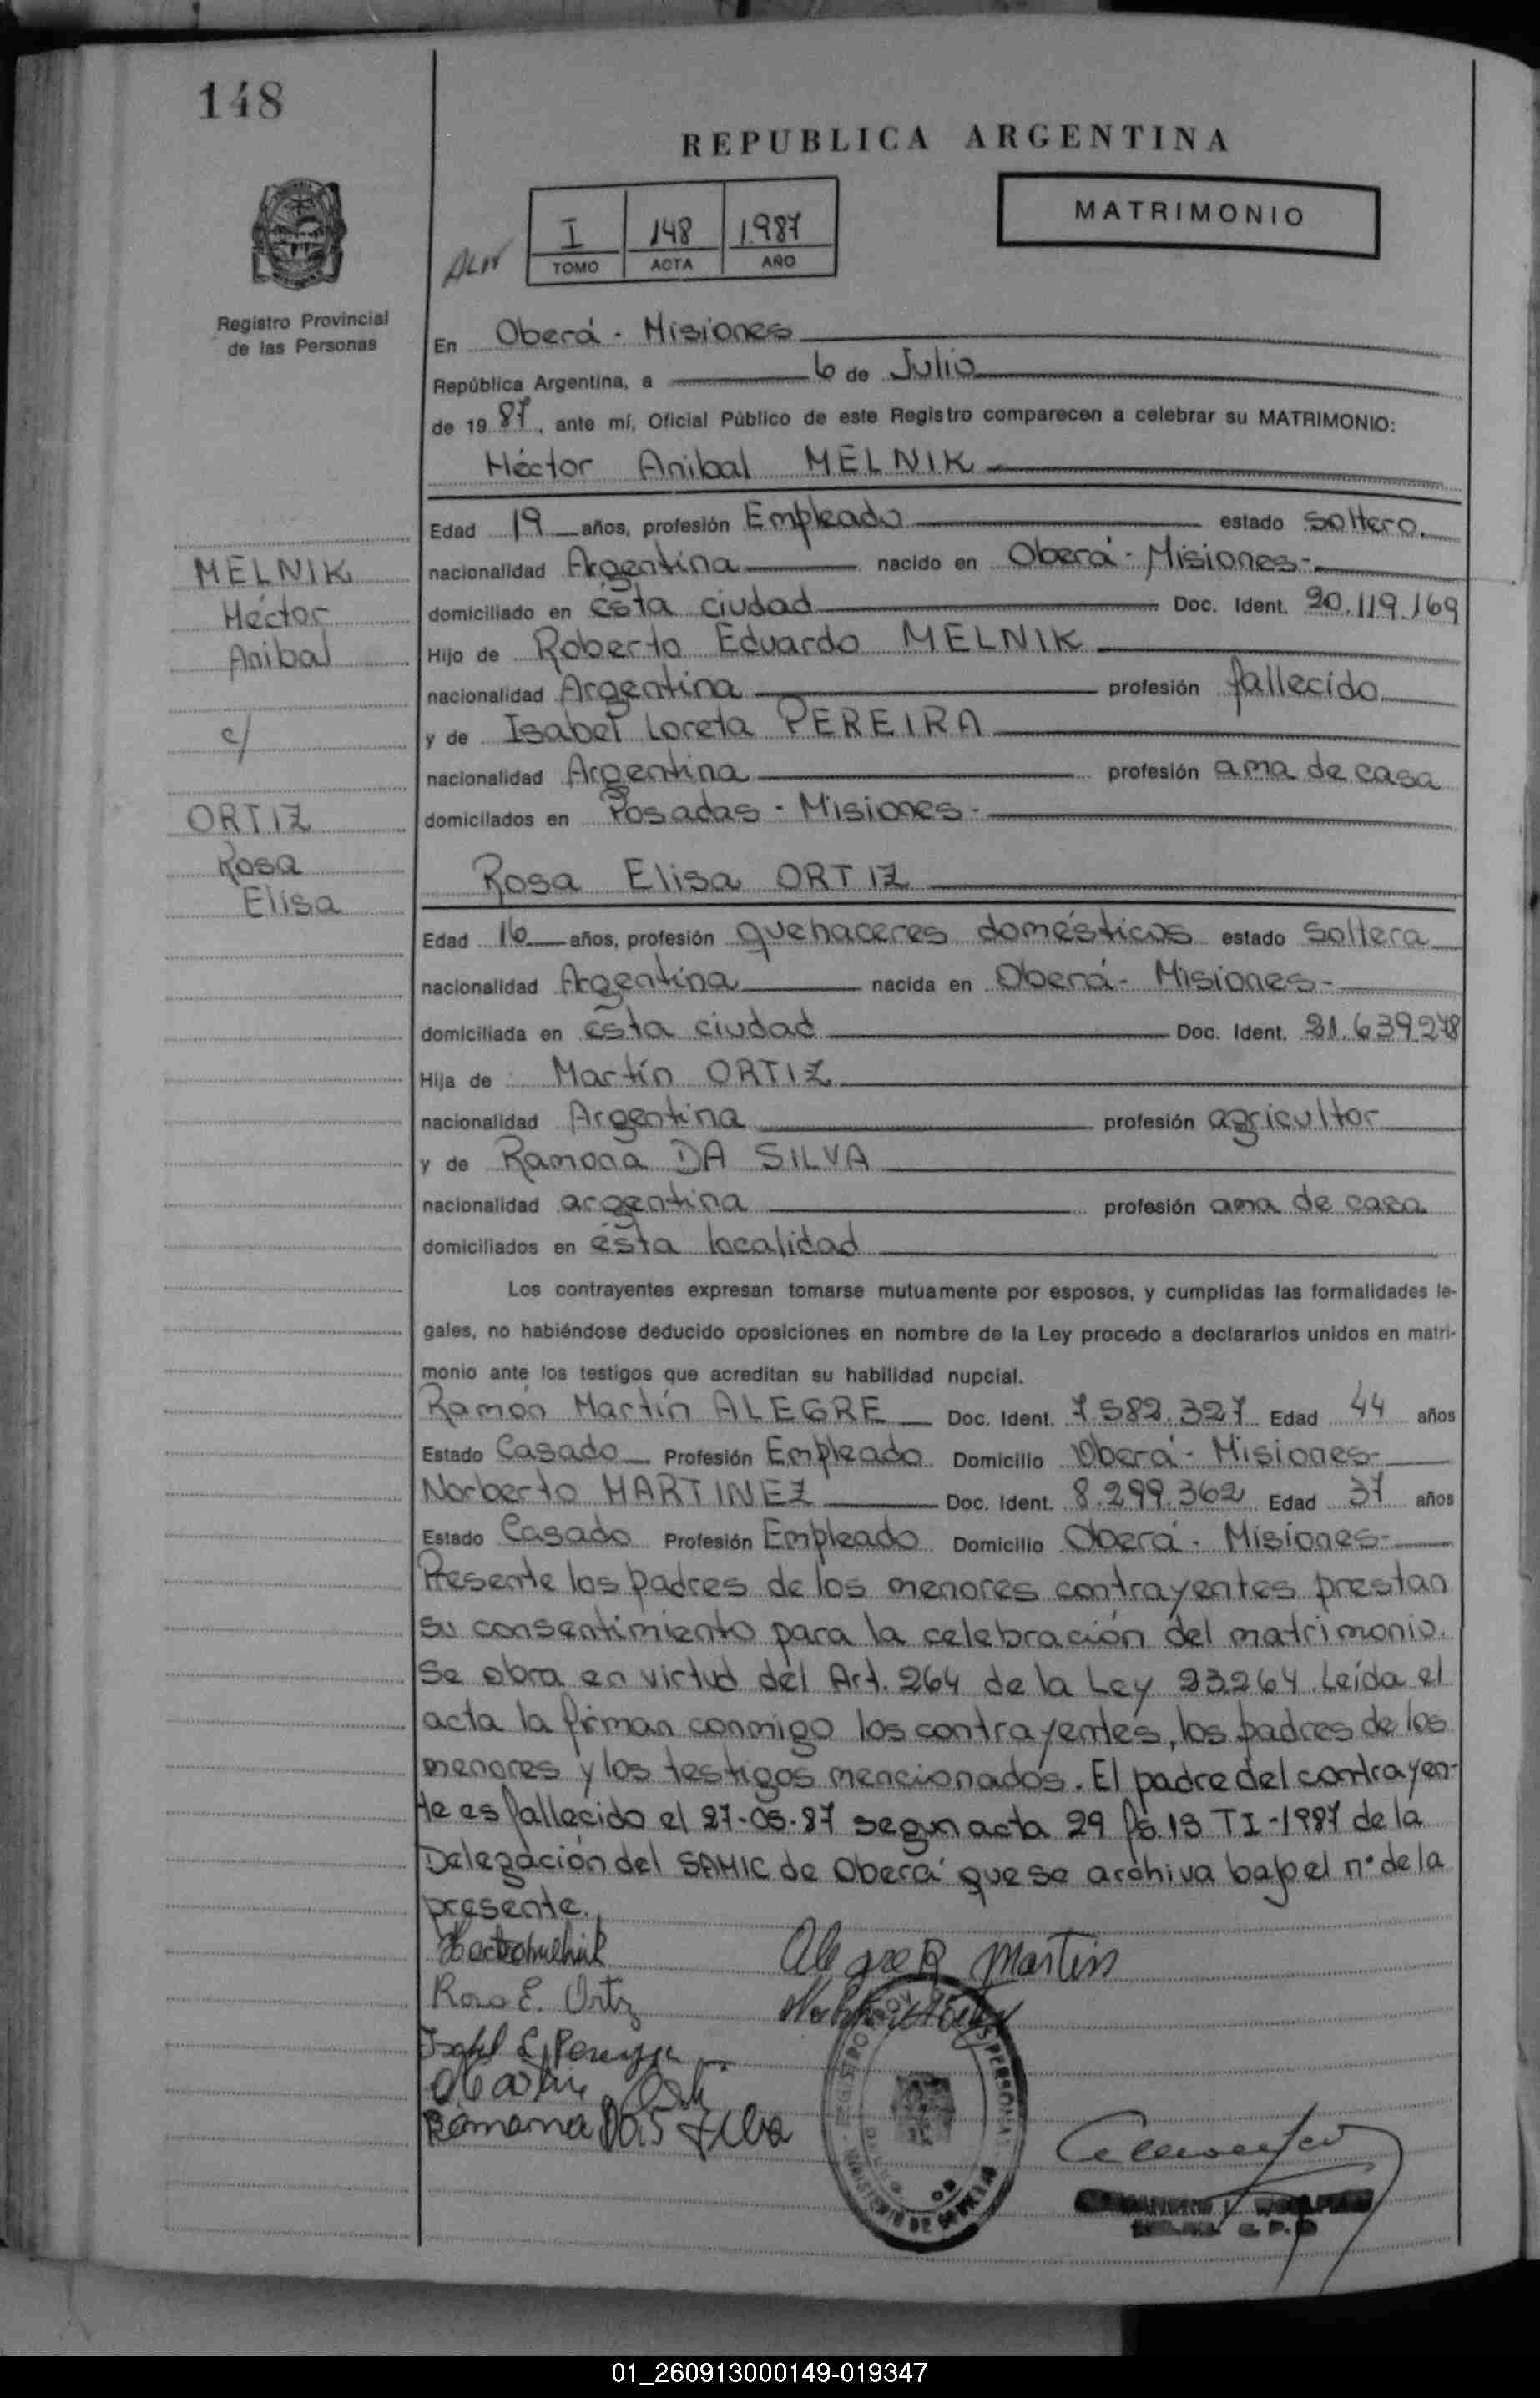 148
REPUBLICA ARGENTINA
MATRIMONIO
I 148 1987
TOMO ACTA AÑO
Registro Provincial
de las Personas
En Oberá - Misiones
República Argentina, a 6 de Julio
de 1987, ante mí, Oficial Público de este Registro comparecen a celebrar su MATRIMONIO:
Héctor Anibal MELNIK
Edad 19 años, profesión Empleado estado soltero.
MELNIK
Héctor
Anibal
c/
ORTIZ
Rosa
Elisa
nacionalidad Argentina nacido en Oberá - Misiones-
domiciliado en ésta ciudad Doc. Ident. 20.119.169
Hijo de Roberto Eduardo MELNIK
nacionalidad Argentina profesión fallecido
y de Isabel Loreta PEREIRA
nacionalidad Argentina profesión ama de casa
domicilados en Posadas - Misiones -
Rosa Elisa ORTIZ
Edad 16 años, profesión quehaceres domésticos estado soltera
nacionalidad Argentina nacida en Oberá - Misiones-
domiciliada en ésta ciudad Doc. Ident. 21.639.278
Hija de Martín ORTIZ
nacionalidad Argentina profesión agricultor
y de Ramona DA SILVA
nacionalidad argentina profesión ama de casa
domiciliados en ésta localidad
Los contrayentes expresan tomarse mutuamente por esposos, y cumplidas las formalidades le-
gales, no habiéndose deducido oposiciones en nombre de la Ley procedo a declararlos unidos en matri-
monio ante los testigos que acreditan su habilidad nupcial.
Ramón Martín ALEGRE Doc. Ident. 7.582.327 Edad 44 años
Estado Casado Profesión Empleado Domicilio Oberá - Misiones-
Norberto MARTINEZ Doc. Ident. 8.299.362 Edad 37 años
Estado Casado Profesión Empleado Domicilio Oberá - Misiones-
Presente los padres de los menores contrayentes prestan
su consentimiento para la celebración del matrimonio.
Se obra en virtud del Art. 264 de la Ley 23264. Leída el
acta la firman conmigo los contrayentes, los padres de los
menores y los testigos mencionados. El padre del contrayen-
te es fallecido el 27-05-87 segun acta 29 fº 15 TI-1987 de la
Delegación del SAMIC de Oberá que se archiva bajo el nº de la
presente.
Alegre R Martin
Rosa E. Ortiz
Ramona Da Silva
01_260913000149-019347